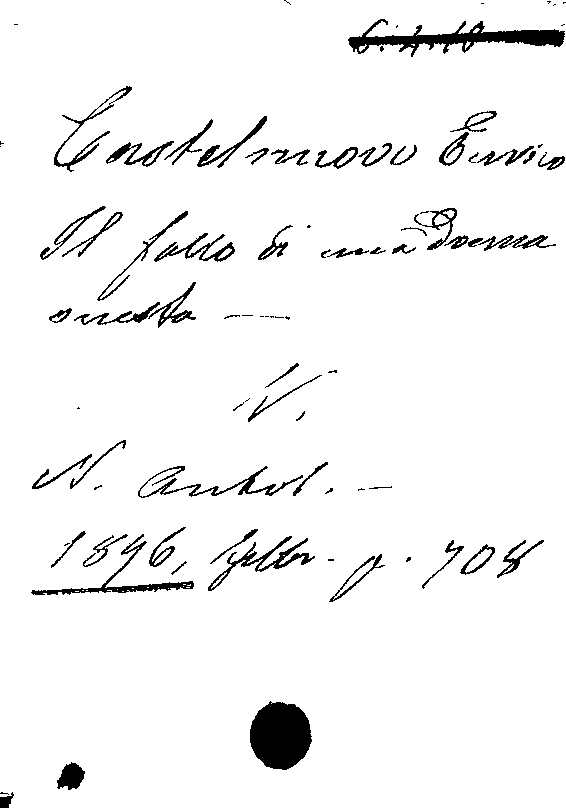 6.4.18
Castelnuovo Enrico
Il fallo di una Donna
onesta —
V.
N. Antol. —
1896, febbr. p. 708